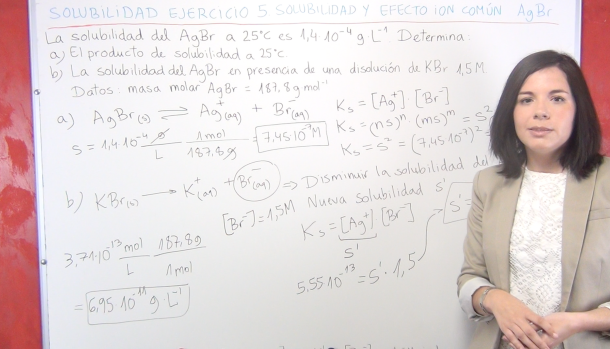 SOLUBILIDAD EJERCICIO 5 SOLUBILIDAD Y EFECTO ION COMÚN AgBr
La solubilidad del AgBr a 25°C es 1,4·10⁻⁴ g·L⁻¹. Determina:
a) El producto de solubilidad a 25°C.
b) La solubilidad del AgBr en presencia de una disolución de KBr 1,5M.
Datos: masa molar AgBr = 187.8 g mol⁻¹
a) AgBr(s) ⇌ Ag⁺(aq) + Br⁻(aq)
Ks = [Ag⁺]·[Br⁻]
Ks = (ns)ⁿ·(ms)ᵐ = s²
s = 1,4·10⁻⁴ g/L · 1mol/187.8g = 7,45·10⁻⁷M
Ks = s² = (7,45·10⁻⁷)² =
b) KBr(s) → K⁺(aq) + Br⁻(aq) ⇒ Disminuir la solubilidad del
[Br⁻]=1,5M Nueva solubilidad s'
Ks = [Ag⁺] [Br⁻]
s'
s' =
3,71·10⁻¹³ mol/L · 187,8g/1mol
5,55·10⁻¹³ = s'·1,5
= 6,95·10⁻¹¹ g·L⁻¹